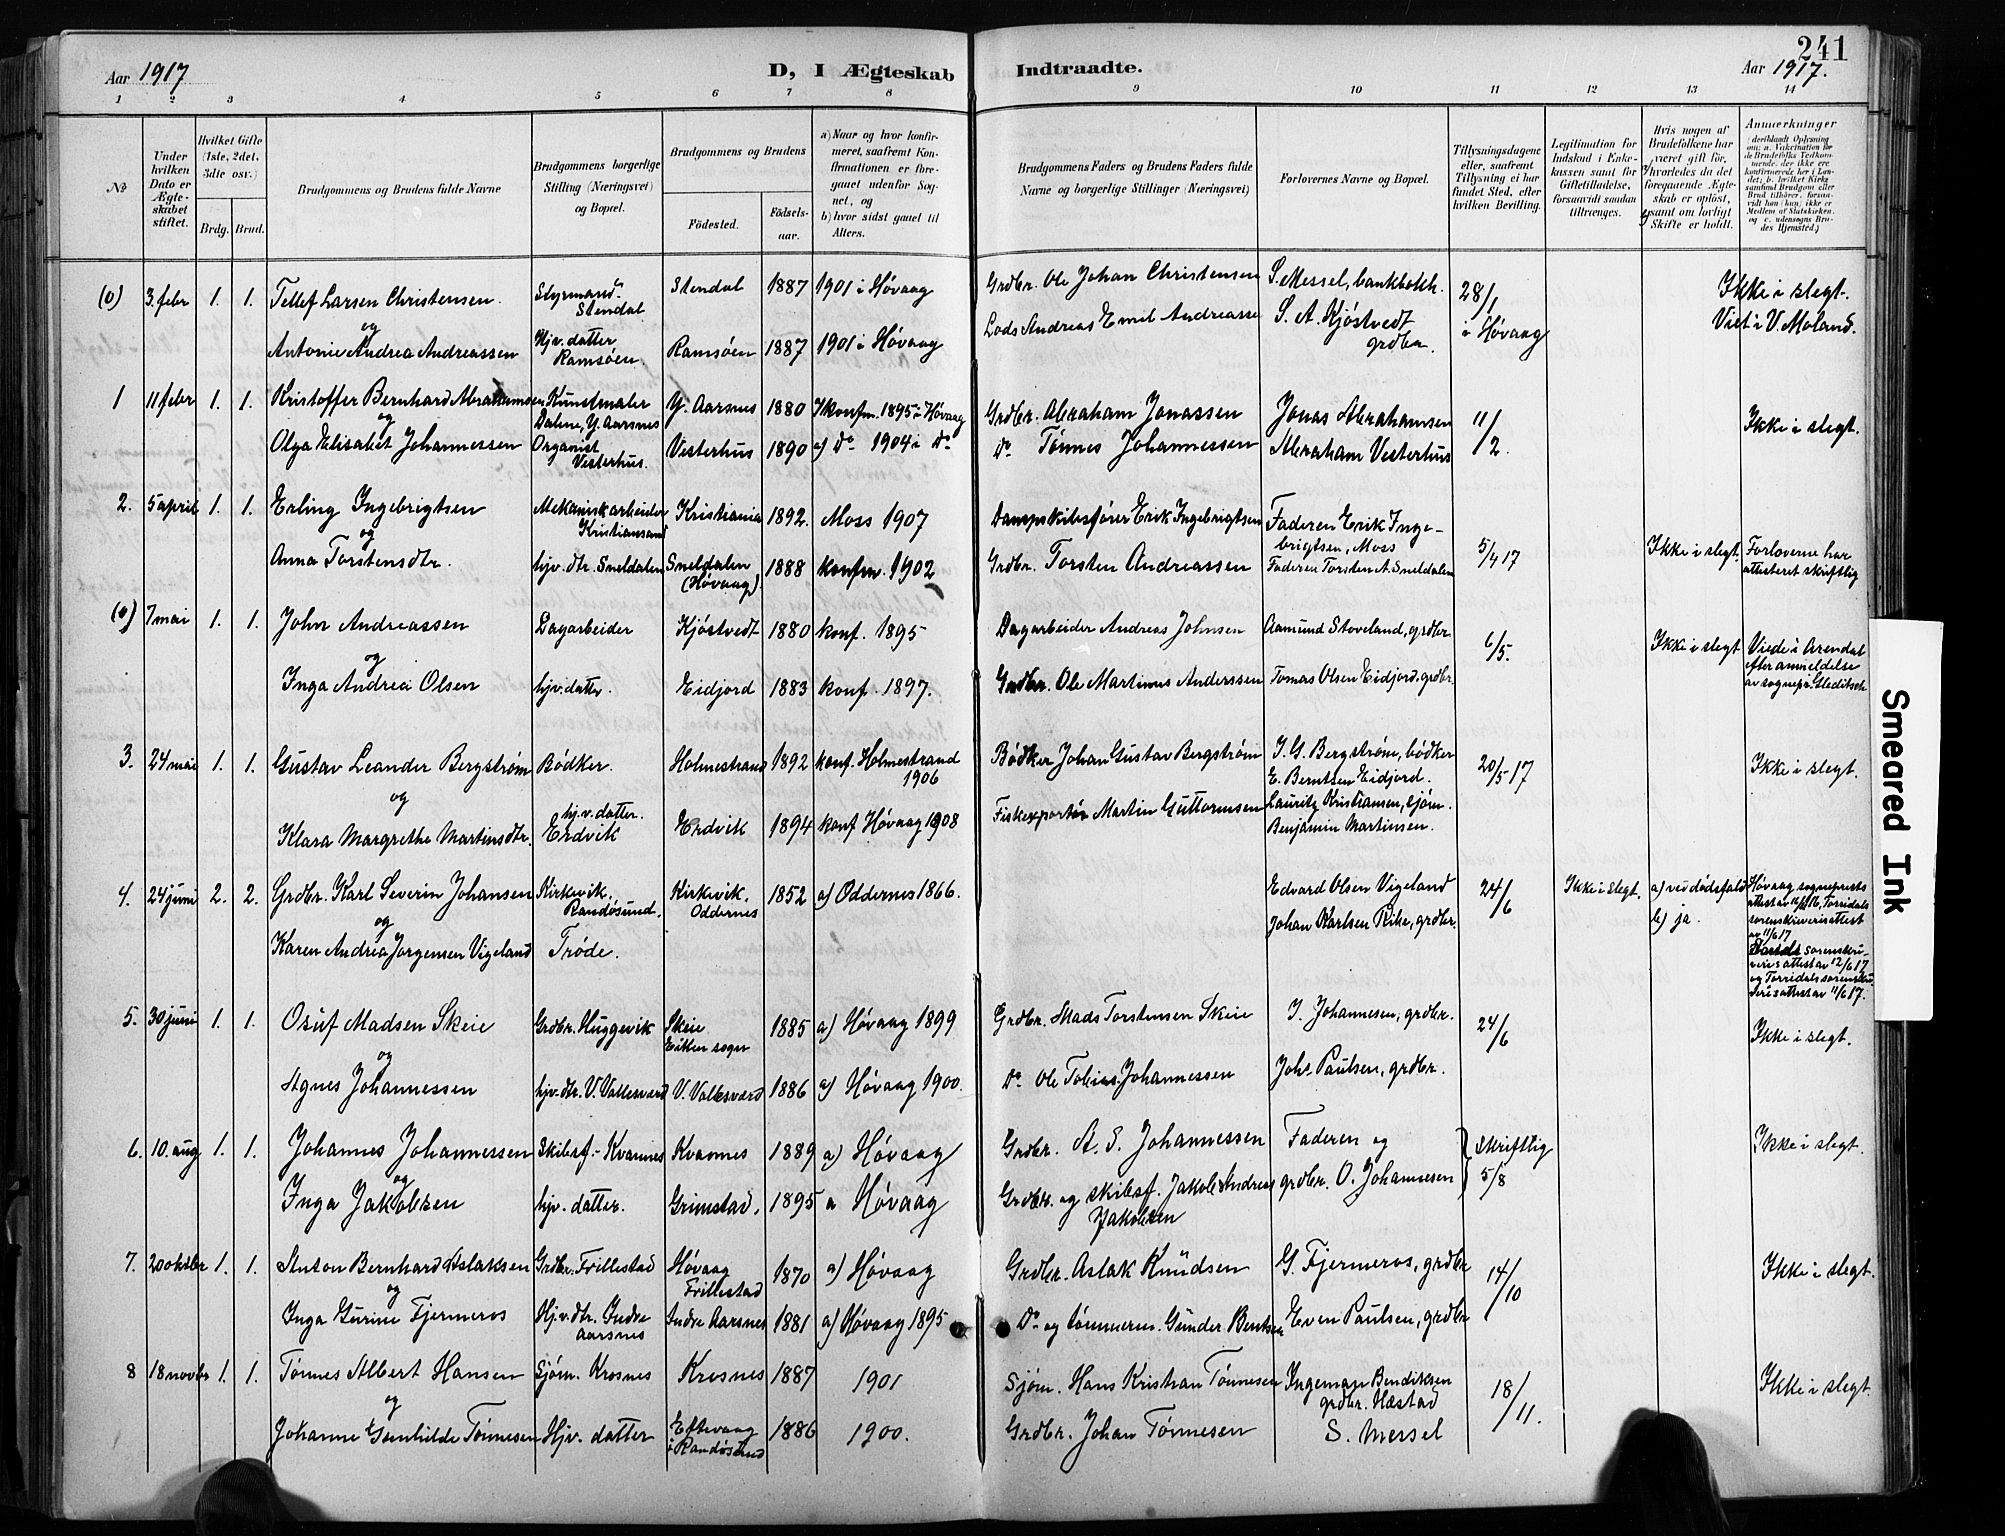 241
Aar 1917
D, I Ægteskab Indtraadte.
Aar 1917.
1 2 3 4 5 6 7 8 9 10 11 12 13 14
No
Under hvilken Dato er Ægteskabet stiftet.
Hvilket Gifte (1ste, 2det, 3die osv.)
Brdg. Brud.
Brudgommens og Brudens fulde Navne
Brudgommens borgerlige Stilling (Næringsvei) og Bopæl.
Brudgommens og Brudens
Fødested.
Fødselsaar.
a) Naar og hvor konfirmeret, saafremt Konfirmationen er foregaaet udenfor Sognet, og
b) hvor sidst gaaet til Alters.
Brudgommens Faders og Brudens Faders fulde Navne og borgerlige Stillinger (Næringsvei)
Forlovernes Navne og Bopæl.
Tillysningsdagene eller, saafremt Tillysning ei har fundet Sted, efter hvilken Bevilling.
Legitimation for Indskud i Enkekassen samt for Giftetilladelse, forsaavidt saadan tiltrænges.
Hvis nogen af Brudefolkene har været gift før, a) hvorledes da det foregaaende Ægteskab er opløst, b) samt om lovligt Skifte er holdt.
Anmerkninger
(deriblandt Oplysning om: a. Vakcination for de Brudefolks Vedkommende, der ikke ere konfirmerede her i Landet; b. hvilket Kirkesamfund Brudgom eller Brud tilhører, forsaavidt han (hun) ikke er Medlem af Statskirken, og c. udensogns Brudes Hjemsted.)
(0) 3. febr 1. 1. Tellef Larsen Christensen. Styrmand Stendal Stendal 1887 1901 i Høvaag Grdbr. Ole Johan Christensen S. Messel, bankbokh. 28/1 i Høvaag Ikke i slegt. Viet i V. Moland.
og
Antonie Andrea Andreassen Hjv. datter Ramsøen Ramsøen 1887 1901 i Høvaag Lods Andreas Emil Andreasse S. A. Kjøstvedt grdbr.
1 11 febr 1. 1. Kristoffer Bernhard Abrahamsen Kunstmaler Dalene, Y. Aarsnes Y. Aarsnes 1880 konfm. 1895 i Høvaag Grdbr. Abraham Jonassen Jonas Abrahamsen 11/2 Ikke i slegt.
og
Olga Elisabet Johannessen Organist Vesterhus. Vesterhus 1890 a) Do 1904 i Do Do Tønnes Johannessen Abraham Vesterhus
2. 5 april 1. 1. Erling Ingebrigtsen Mekanikarbeider Kristiansand Kristiania 1892. Moss 1907 Dampskibsfører Erik Ingebrigtsen Faderen Erik Ingebrigtsen, Moss 5/4 17 Ikke i slegt. Forloverne har attesteret skriftlig
og
Anna Torstensdtr. hjv. dtr. Sneldalen Sneldalen (Høvaag). 1888 konfm. 1902 Grdbr. Torsten Andreassen Faderen Torsten A. Sneldalen
(0) 7 mai 1. 1. John Andreassen Dagarbeider Kjøstvedt 1880 konf. 1895 Dagarbeider Andreas Johnsen Aamund Stoveland, grdbr. 6/5. Ikke i slegt Viede i Arendal efter anmeldelse av sognepr. Gleditsch
og
Inga Andrea Olsen hjv. datter. Eidjord 1883 konf. 1897. Grdbr. Ole Martinus Anderssen Tomas Olsen Eidjord, grdbr.
3. 24 mai 1. 1. Gustav Leander Bergstrøm Bødker. Holmestrand 1892 konf. Holmestrand 1906 Bødker Johan Gustav Bergstrøm J. G. Bergstrøm, bødker E. Berntsen Eidjord. 20/5 17 Ikke i slegt.
og
Klara Margrethe Martinsdtr. hjv. datter. Erdvik Erdvik 1894 konf Høvaag 1908 Fiskeexportør Martin Guttormsen Lauritz Kristiansen, sjøm. Benjamin Martinsen.
4. 24 juni 2. 2. Grdbr. Karl Severin Johansen Kirkevik, Randøsund. Kirkevik, Oddernes 1852 a) Oddernes 1866. Edvard Olsen Vigeland 24/6 Ikke i slegt. a) ved dødsfald b) ja. Høvaag sogneprests attest av 16/6 16, Torridals sorenskriverisattest av 11/6 17
og
Karen Andrea Jørgensen Vigeland Trøde. Johan Karlsen Rike, grdbr. sorenskriveris attest av 12/6 17 og Torridal sorenskriveris attest av 11/6 17.
5. 30 juni 1. 1. Osuf Madsen Skeie Grdbr. Huggevik Skeie Eiken sogn 1885 a) Høvaag 1899 Grdbr. Mads Torstensen Skeie J. Johannesen, grdbr. 24/6 Ikke i slegt.
og
Agnes Johannessen hjv. dtr. V. Vallesværd V. Vallesværd 1886 a) Høvaag 1900. Do Ole Tobias Johannessen Johs Paulsen, grdbr.
6. 10. aug 1. 1. Johannes Johannessen Skibsf. - Kvannes Kvannes 1889 a) Høvaag Grdbr. A. S. Johannessen Faderen og Skriftlig 5/8 Ikke i slegt.
og
Inga Jakobsen hjv. datter. Grimstad. 1895 a Høvaag Grdbr. og skibsf. Jakob Andreas Jakobsen grdbr. O. Johannesen
7. 20 oktbr 1. 1. Anton Bernhard Aslaksen Grdbr. Frillestad Høvaag Frillestad 1870 a) Høvaag Grdbr. Aslak Knudsen G. Fjermeros, grdbr 14/10 Ikke i slegt.
og
Inga Gurine Fjermeros Hjv. dtr. Indre Aarsnes Indre Aarsnes 1881 a) Høvaag 1895 Do og tømmerm. Gunder Bentsen Even Paulsen, grdbr
8 18 novbr 1. 1. Tønnes Albert Hansen Sjøm. Krosnes Krosnes 1887 1901 Sjøm. Hans Kristian Tønnesen Ingeman Bendiksen grdbr. Næstad 18/11. Ikke i slegt.
og
Johanne Gunhilde Tønnesen Hjv. datter Eftevaag i Randøsund 1886 1900. Grdbr. Johan Tønnesen S. Messel
Smeared Ink